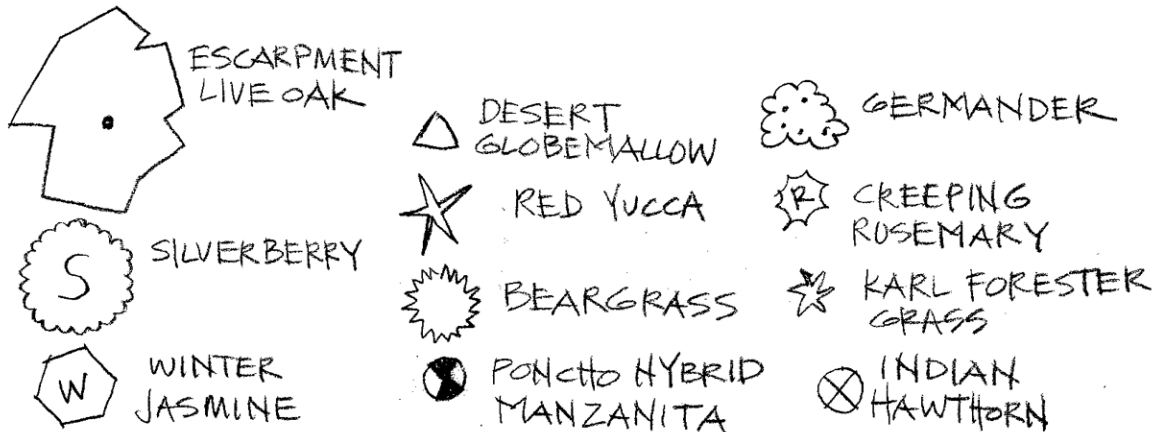 ESCARPMENT
LIVE OAK
S
SILVERBERRY
W
WINTER
JASMINE
DESERT
GLOBEMALLOW
RED YUCCA
BEARGRASS
PONCHO HYBRID
MANZANITA
GERMANDER
R
CREEPING
ROSEMARY
KARL FORESTER
GRASS
INDIAN
HAWTHORN